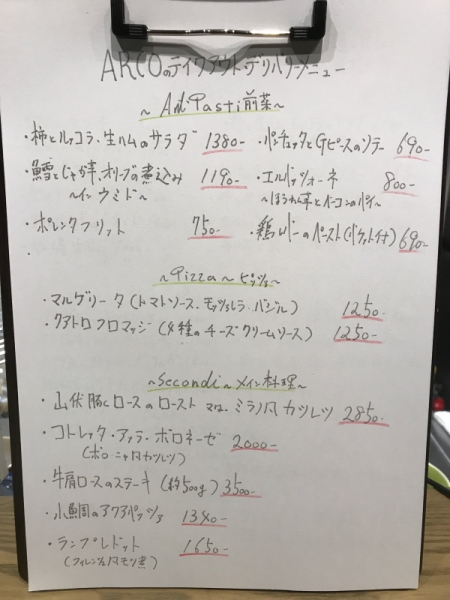 ARCOのテイクアウト・デリバリーメニュー
～Anti Pasti前菜～
・柿とルッコラ、生ハムのサラダ 1380-
・パンチェッタとGピースのソテー 690-
・鱈とじゃが芋、オリーブの煮込み 1190-
～イン ウミド～
・エルバッツォーネ 800-
～ほうれん草とベーコンのパイ～
・ポレンタフリット 750-
・鶏レバーのペースト(バケット付) 690-
～Pizza～ピッツァ～
・マルゲリータ(トマトソース、モッツァレラ、バジル) 1250-
・クアトロフロマッジ(4種のチーズクリームソース) 1250-
～Secondi～メイン料理～
・山伏豚ロースのロースト または ミラノ風カツレツ 2850-
・コトレッタ・アッラ・ボロネーゼ 2000-
(ボローニャ風カツレツ)
・牛肩ロースのステーキ(約500g) 3500-
・小鯛のアクアパッツァ 1340-
・ランプレドット 1650-
(フィレンツェ風モツ煮)